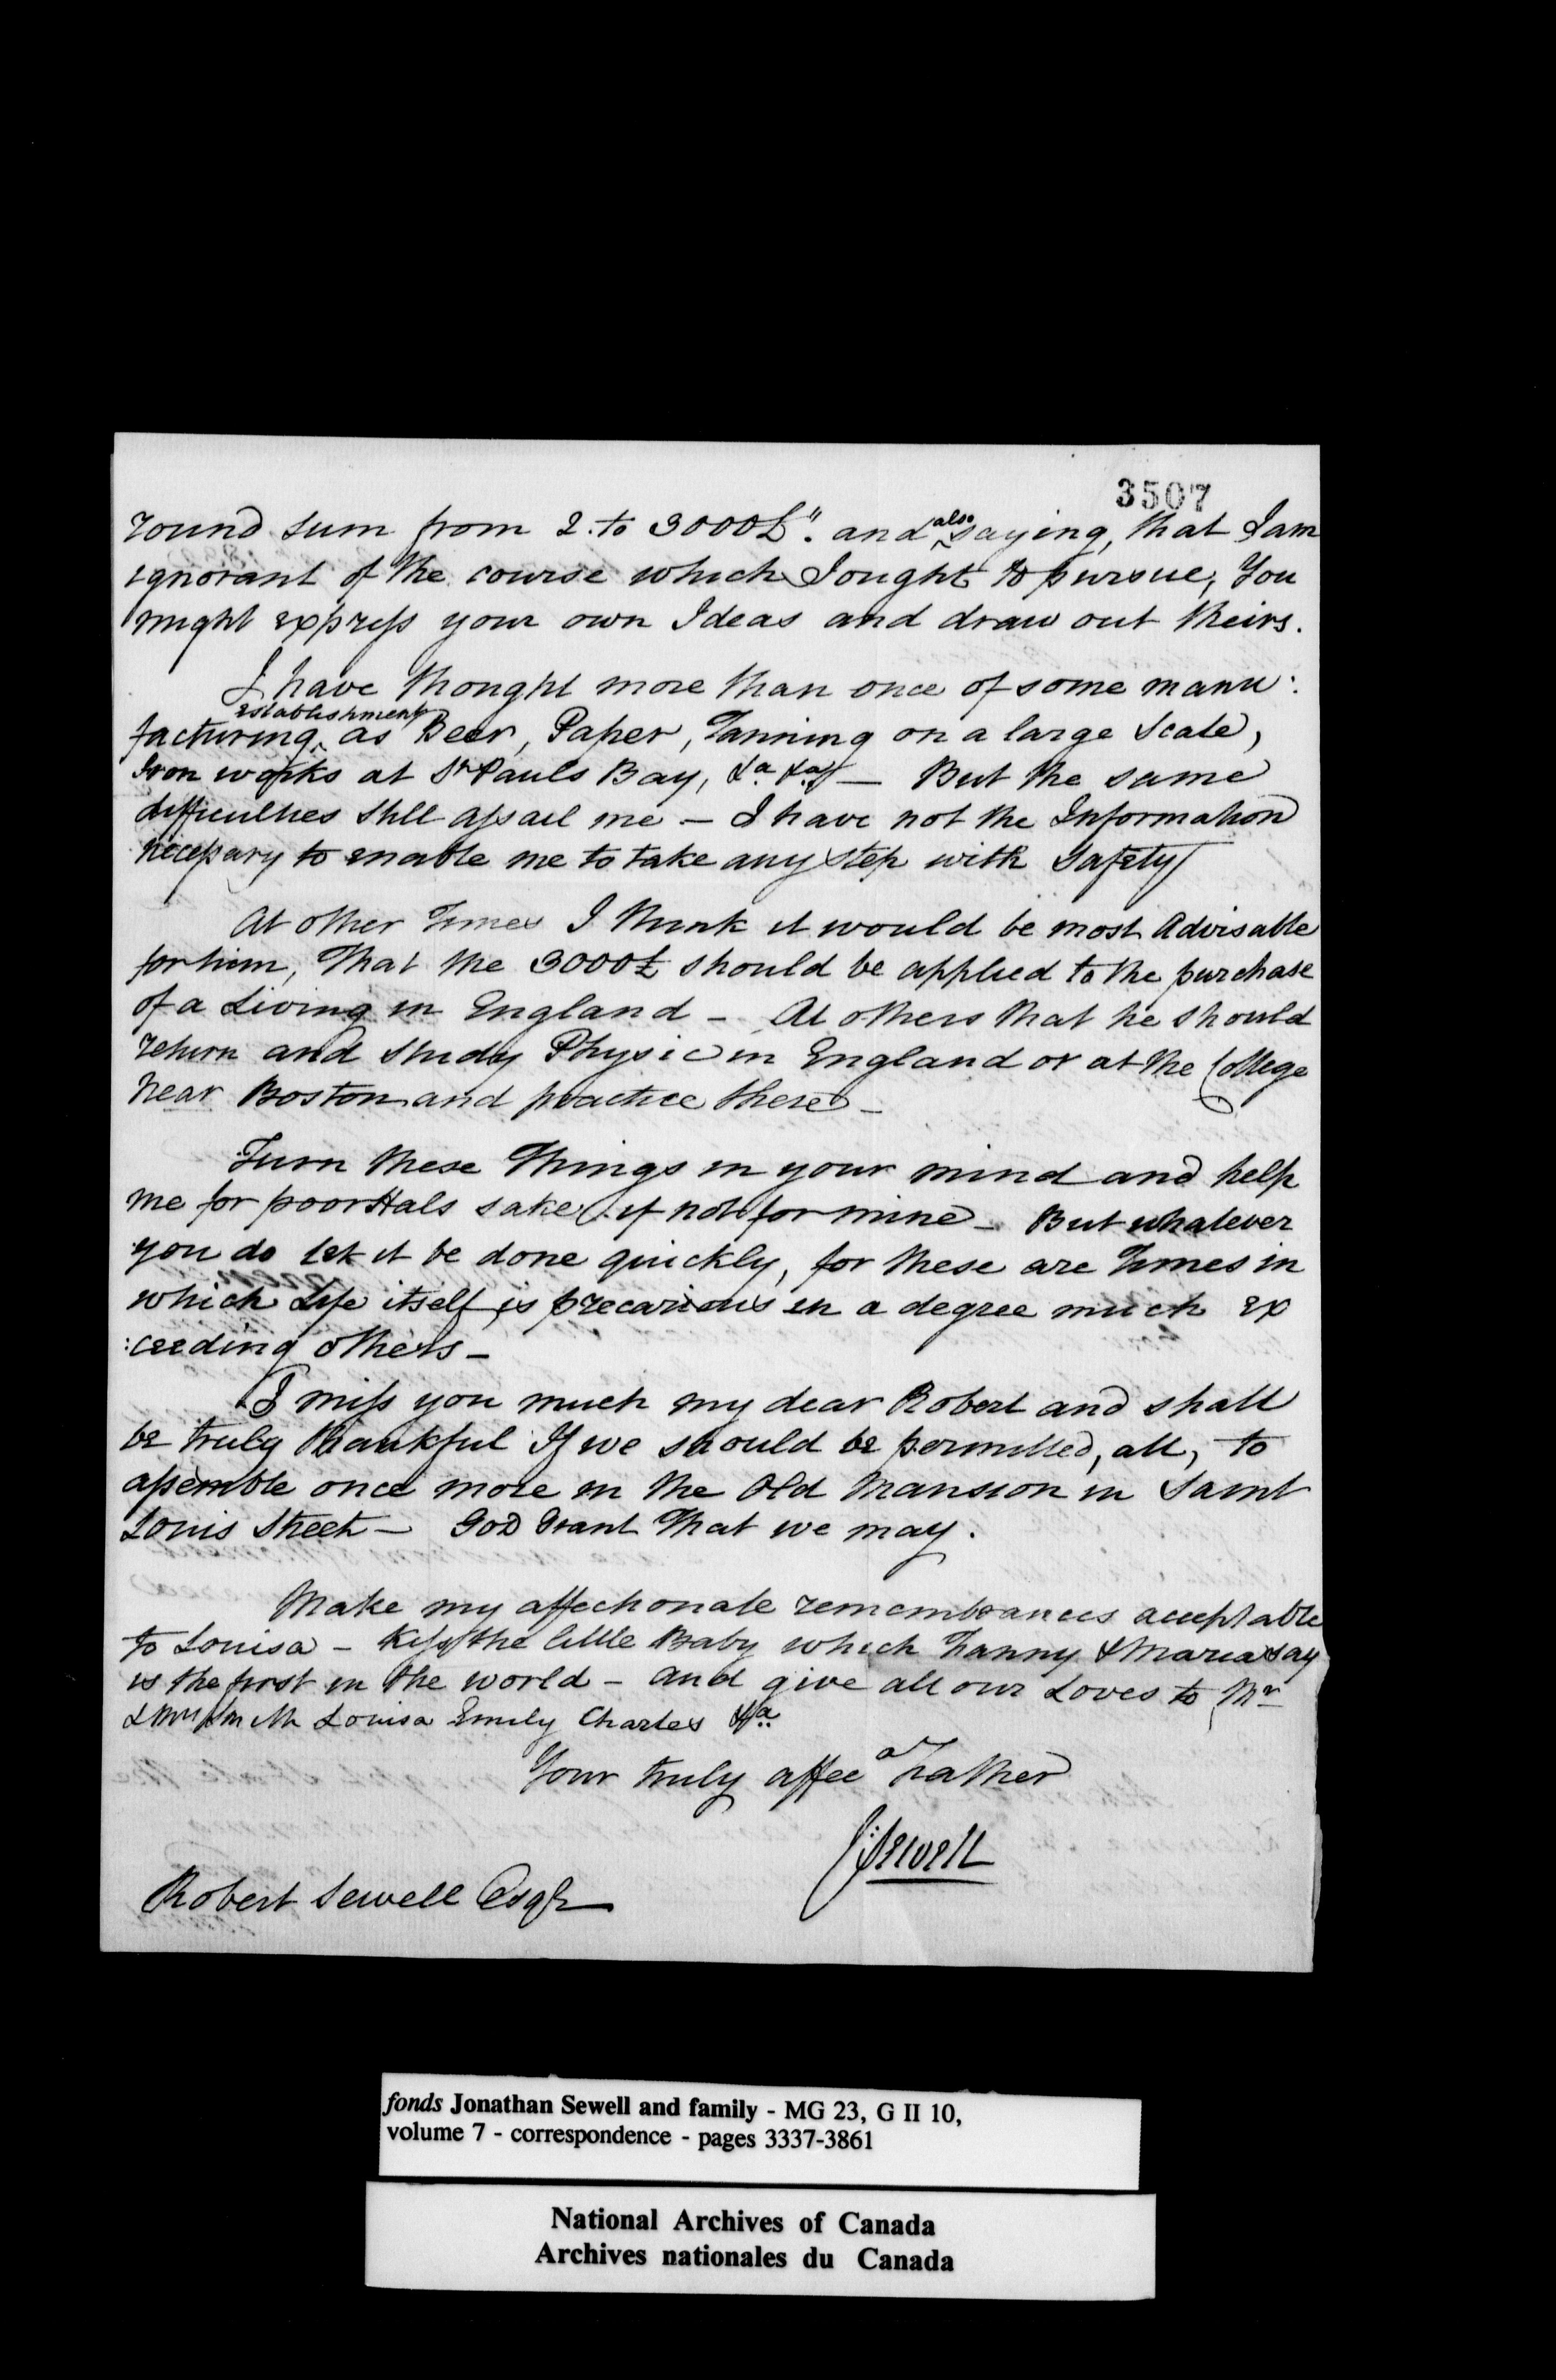 3507
round sum from 2. to 3000£". and also saying, that I am
ignorant of the course which I ought to pursue, You
might express your own Ideas and draw out theirs.
I have thought more than once of some manu:
facturing establishment as Beer, Paper, Tanning on a large Scale,
Iron works at St Pauls Bay, &a &a — But the same
difficulties still assail me — I have not the Information
necessary to enable me to take any step with safety
At other Times I think it would be most Advisable
for him, That the 3000£ should be applied to the purchase
of a Living in England — At others that he should
return and study Physic in England or at the College
near Boston and practice there —
Turn these Things in your mind and help
me for poor Hals sake if not for mine — But whatever
you do let it be done quickly, for these are Times in
which Life itself is precarious in a degree much ex
:ceeding others —
I miss you much my dear Robert and shall
be truly thankful If we should be permitted, all, to
assemble once more in the Old Mansion in Saint
Louis Street — God Grant That we may.
Make my affectionate remembrances acceptable
to Louisa — Kiss the little Baby which Fanny & Maria say
is the first in the world — and give all our Loves to Mr
& Mrs Smith Louisa Emily Charles &a
Your truly affece Father
J: Sewell
Robert Sewell Esqr
fonds Jonathan Sewell and family - MG 23, G II 10,
volume 7 - correspondence - pages 3337-3861
National Archives of Canada
Archives nationales du Canada